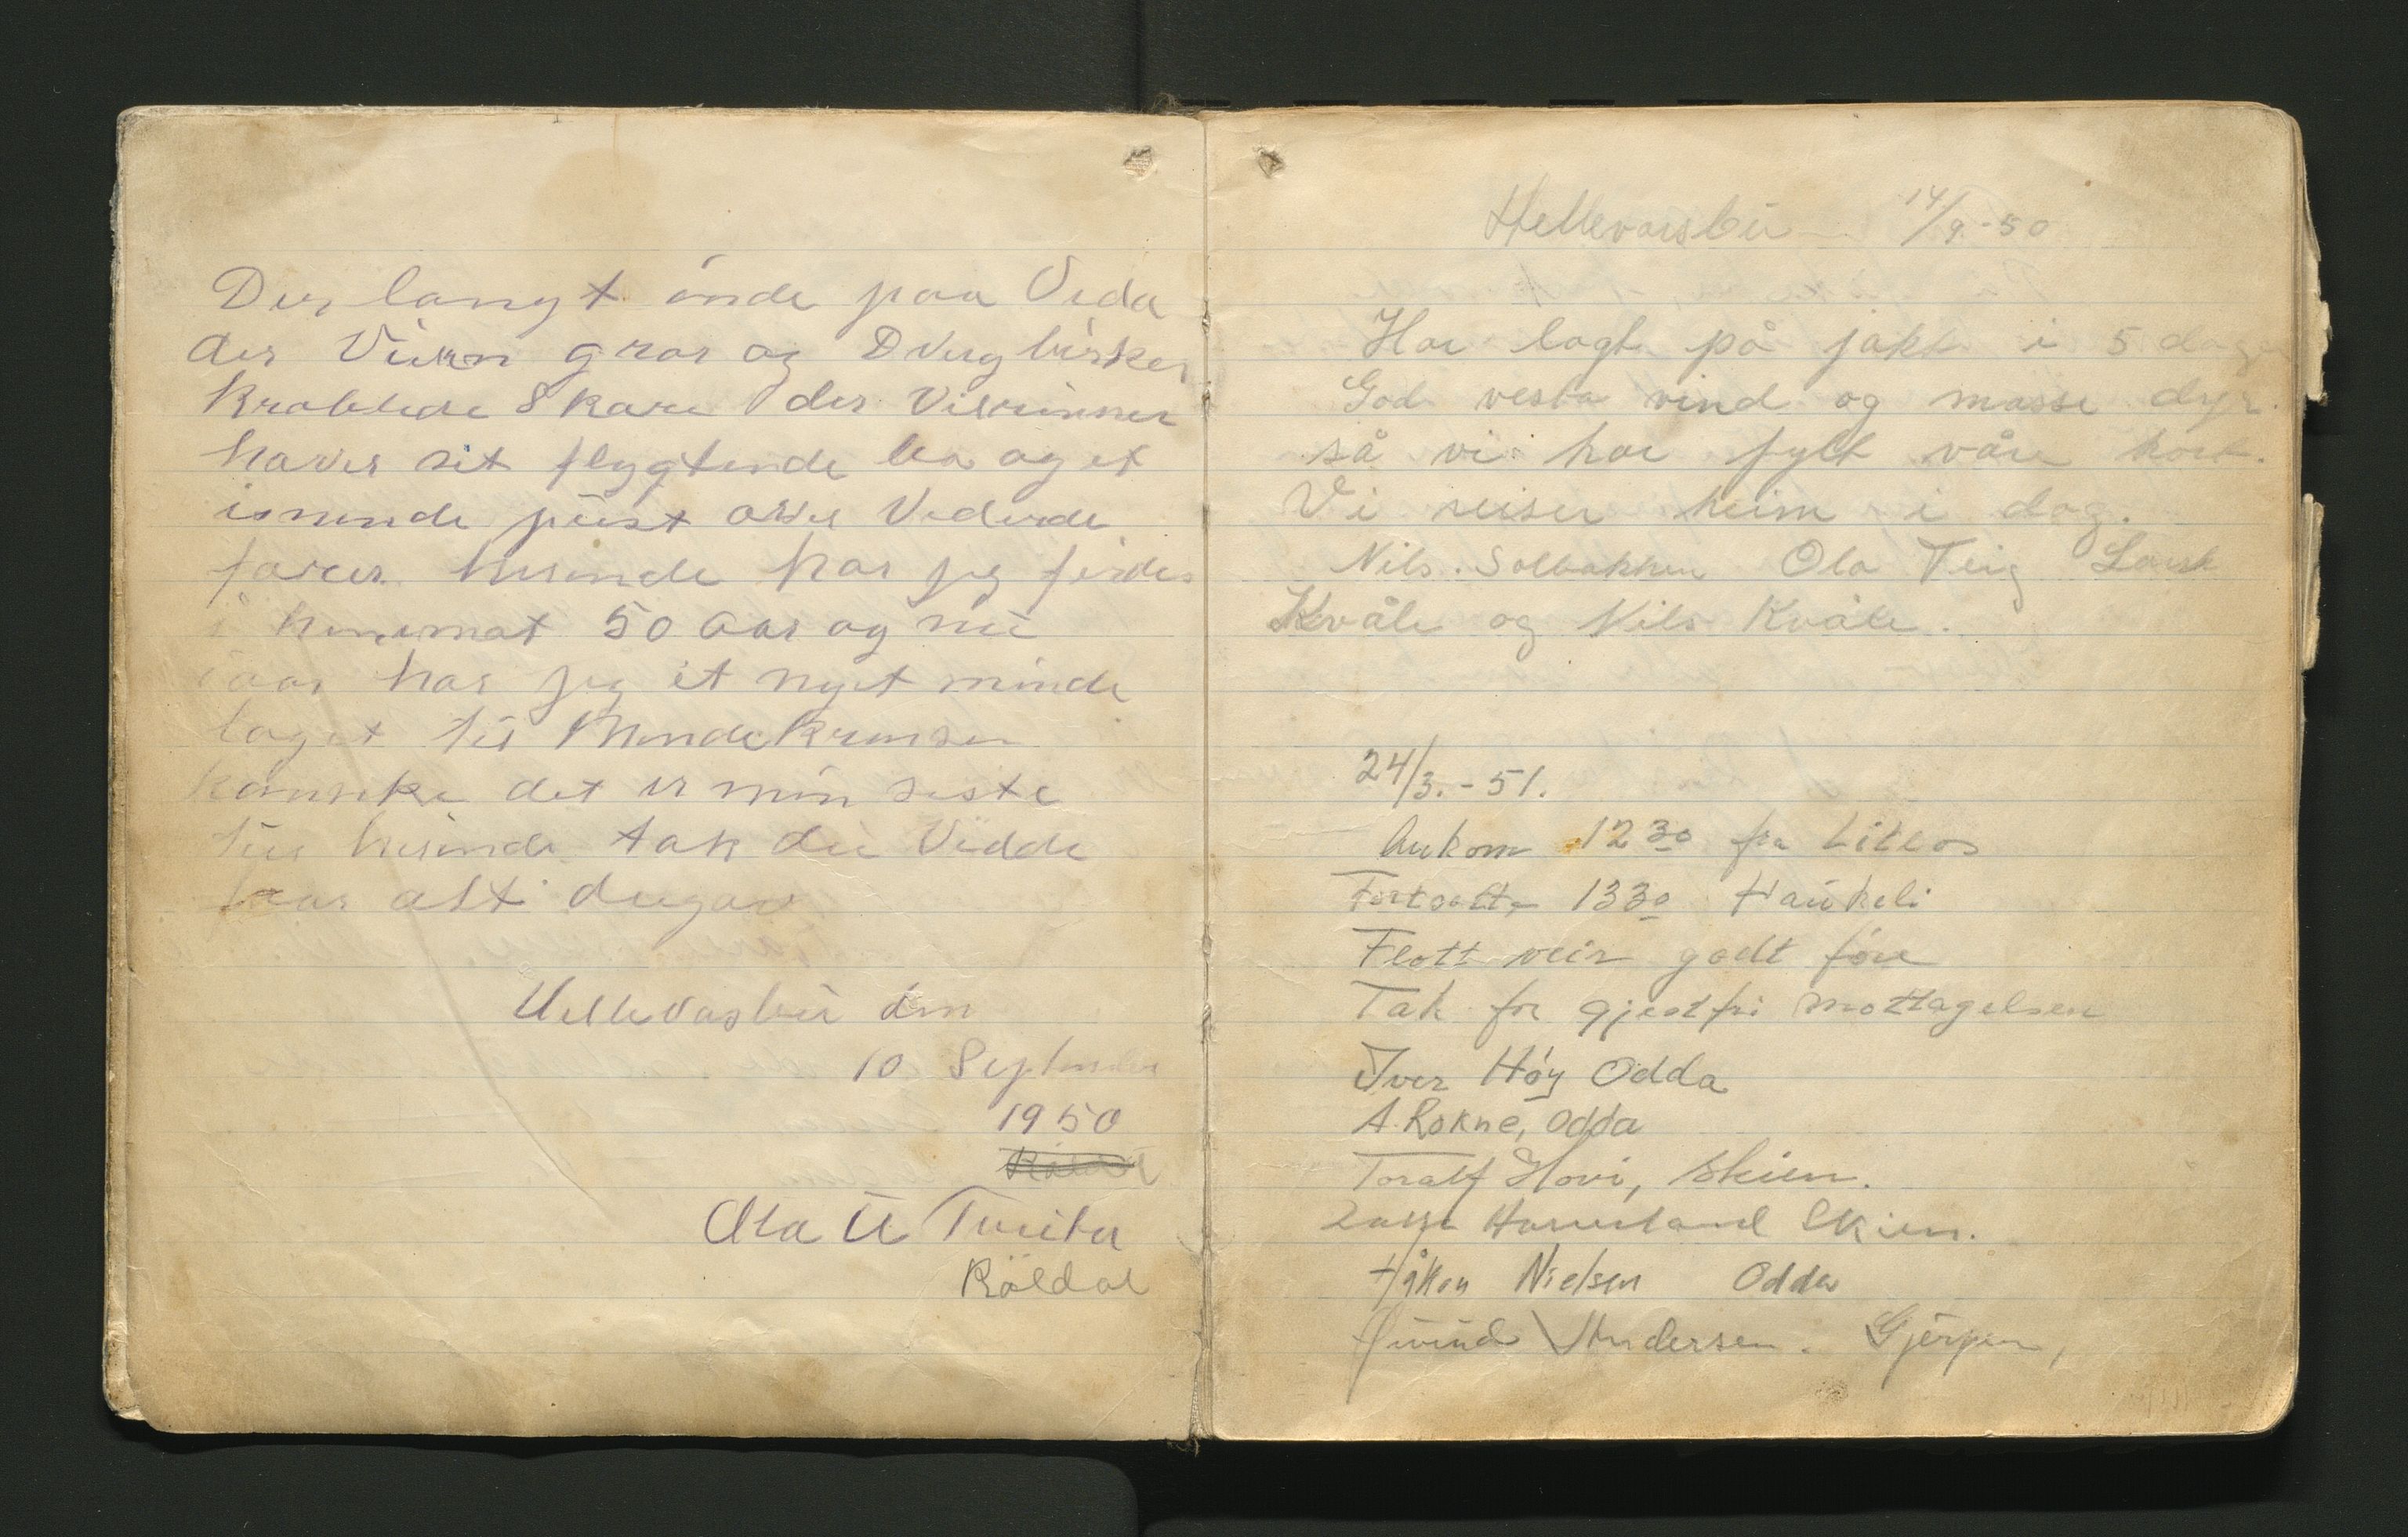 Der langt inde paa Vida
der Viern gror og Dvergbirker
Krablede Skare der Vilrinner
haver sit flygtende
isnende pust over Viderde
farer herinde har jeg ferdes
i 50 Aar og nu
iaar har jeg et nyet minde
laget til Mindekransen
kanske det er min siste
tur herinde tak du Vidde
for alt du gav
Hellevasbu den
10 September
1950
Röldal
Ola Tveita
Röldal
Hellevasbu 14/9-50
Har lagt på jakt i 5 dager
God vesta vind og masse dyr.
så vi har fylt våre kort.
Vi reiser heim i dag.
Nils. Solbakken Ola Teig Lars
Kvåle og Nils Kvåle.
24/3.-51.
Ankom 12 30 fra Litlos
Fortsatte 13 30 Haukeli
Flott veir godt före
Tak for gjestfri mottagelsen
Iver Höy Odda
A. Rokne, Odda
Toralf Hovi, Skien.
Skien.
Håkon Nielsen Odda
Øivind Andersen. Gjerpen,